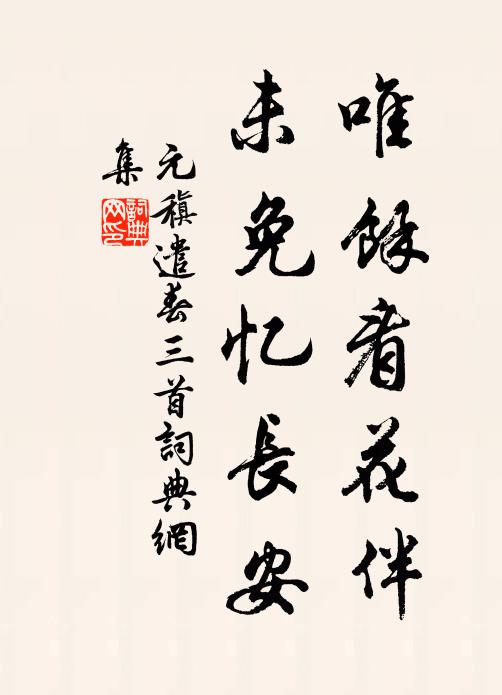 唯餘看花伴
未免忆長安
元稹遣春三首詞典網
集
詞典網印